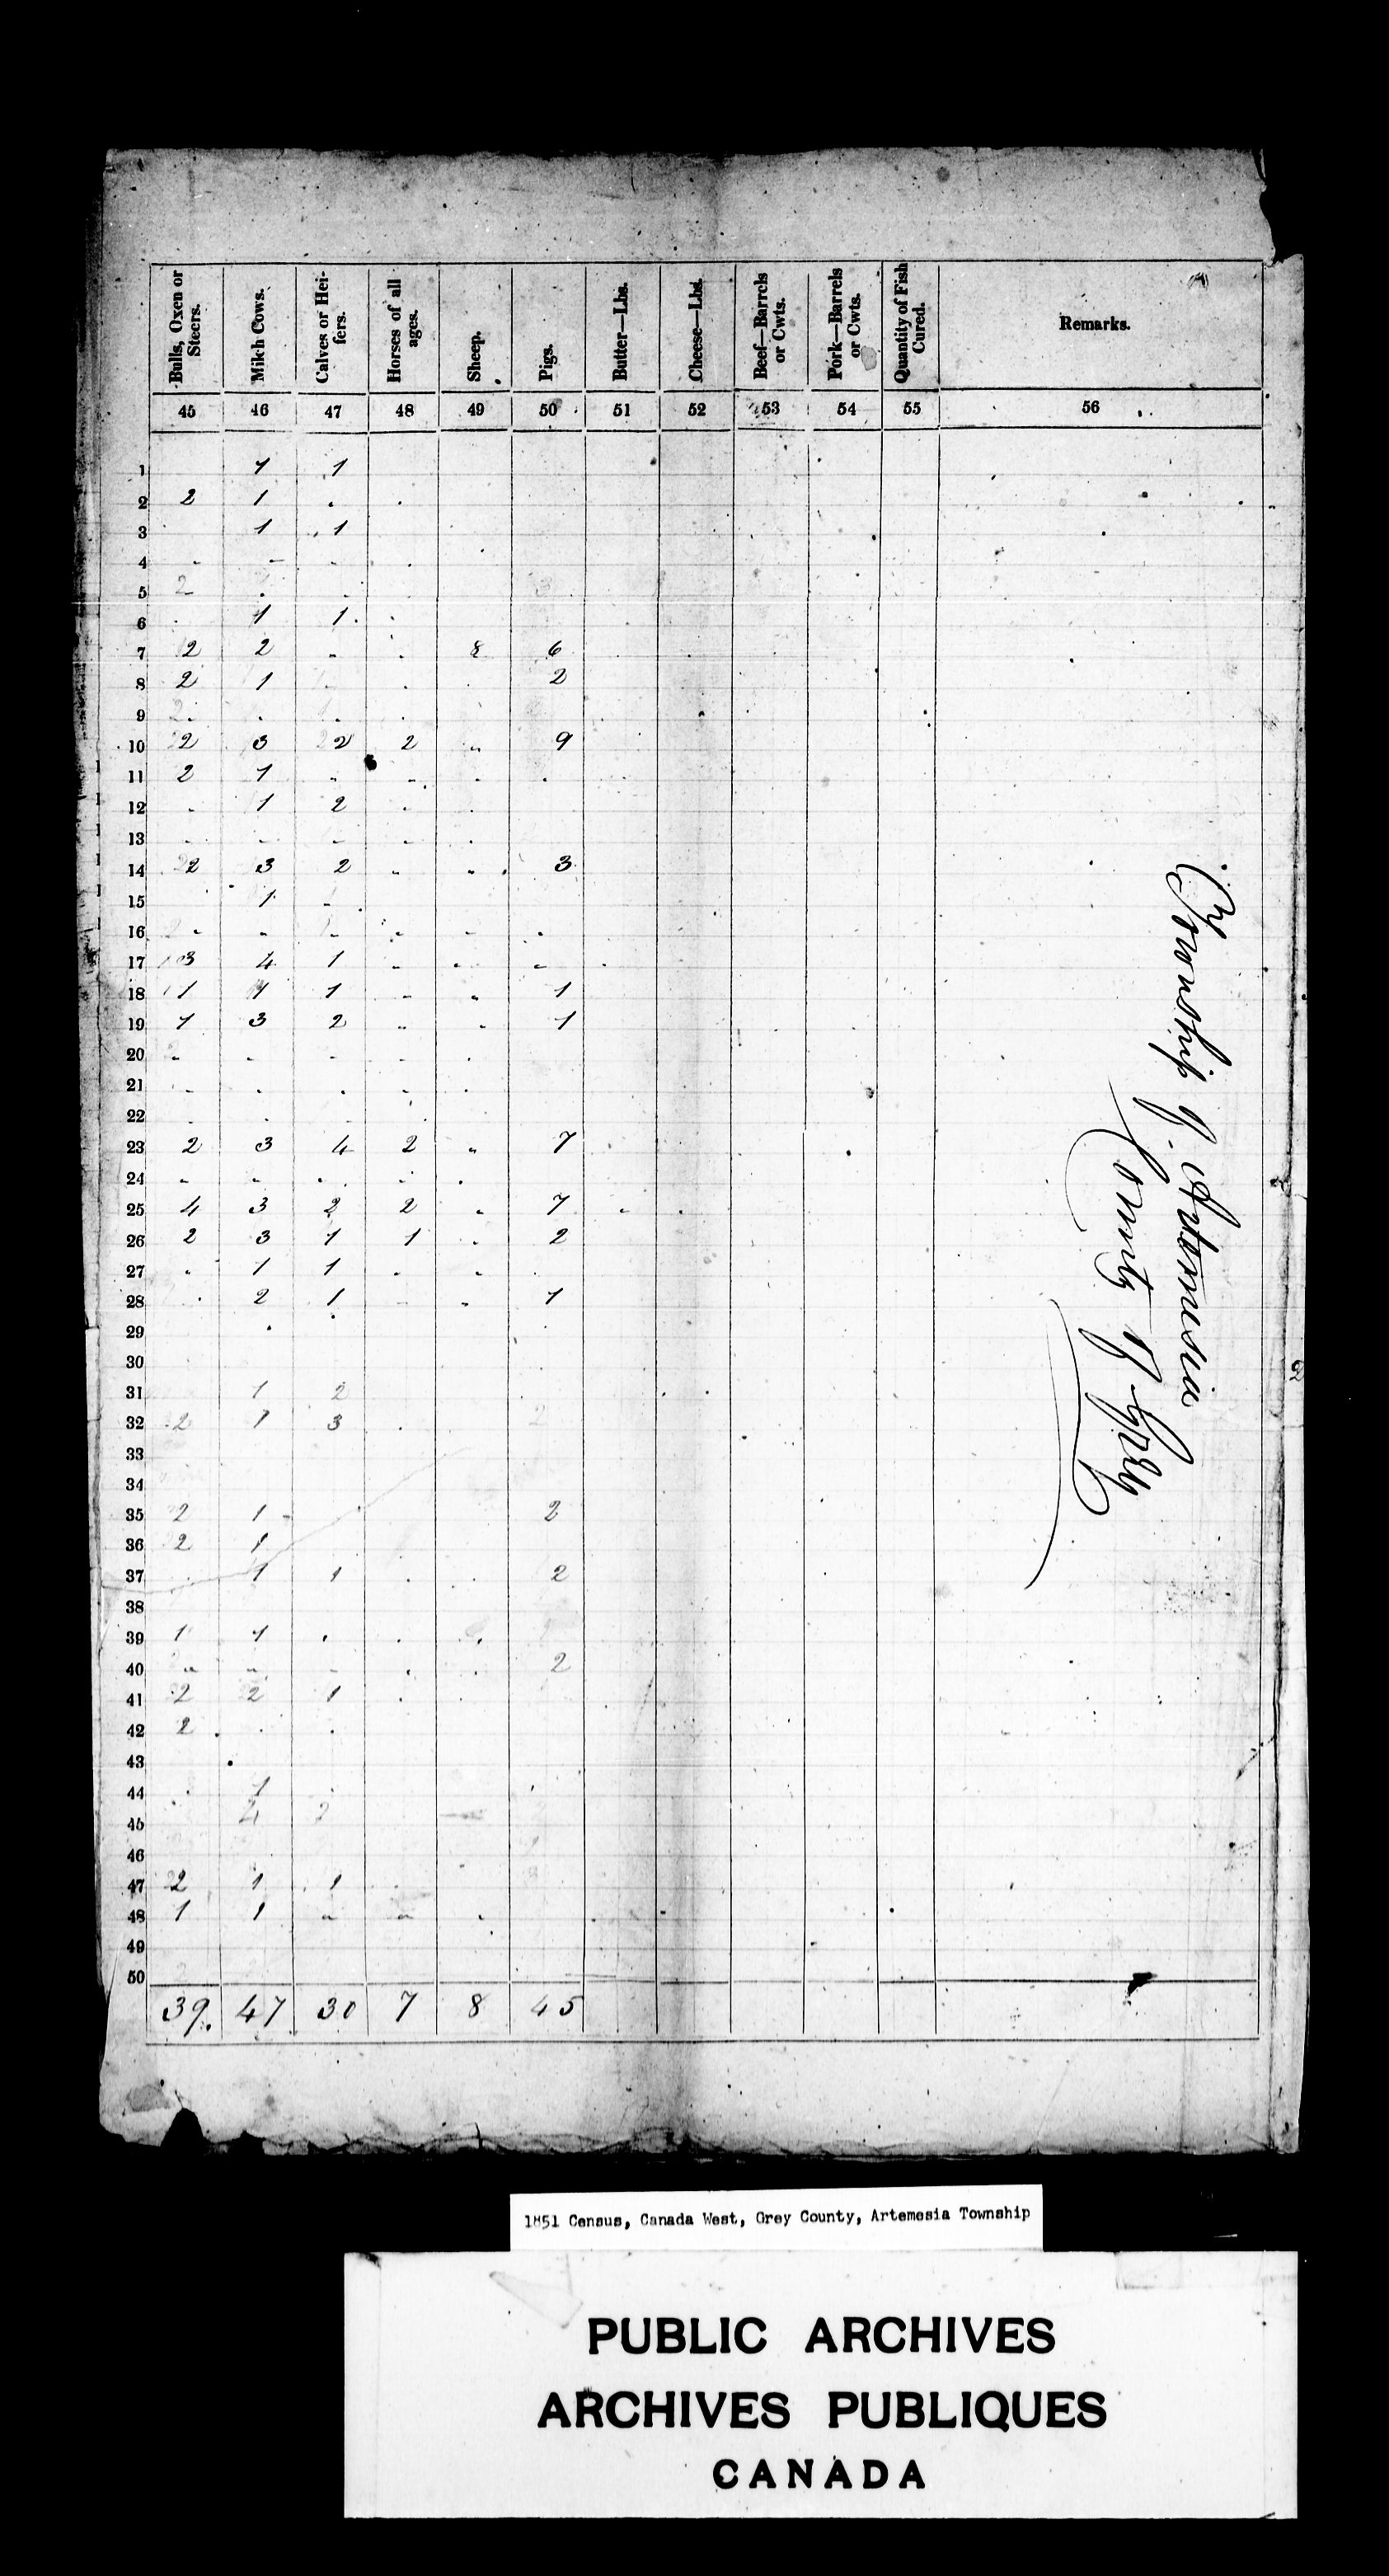 Bulls, Oxen or Steers. Milch Cows. Calves or Heifers. Horses of all ages. Sheep. Pigs. Butter—Lbs. Cheese—Lbs. Beef—Barrels or Cwts. Pork—Barrels or Cwts. Quantity of Fish Cured. Remarks.
45 46 47 48 49 50 51 52 53 54 55 56
1 1 1
2 2 1
3 1 1
4
5 2
6 1 1
7 2 2 8 6
8 2 1 2
9
10 2 3 2 2 9
11 2 1
12 1 2
13
14 2 3 2 3
15 1
16
17 3 4 1
18 1 1 1 1
19 1 3 2 1
20
21
22
23 2 3 4 2 7
24
25 4 3 2 2 7
26 2 3 1 1 2
27 1 1
28 2 1 1
29
30
31 1 2
32 2 1 3
33
34
35 2 1 2
36 2 1
37 1 1 2
38
39 1 1
40 2
41 2 2 1
42 2
43
44 1
45 2
46
47 2 1 1
48 1 1
49
50
39. 47 30 7 8 45
Township of Artemesia
County of Grey
2
1851 Census, Canada West, Grey County, Artemesia Township
PUBLIC ARCHIVES
ARCHIVES PUBLIQUES
CANADA